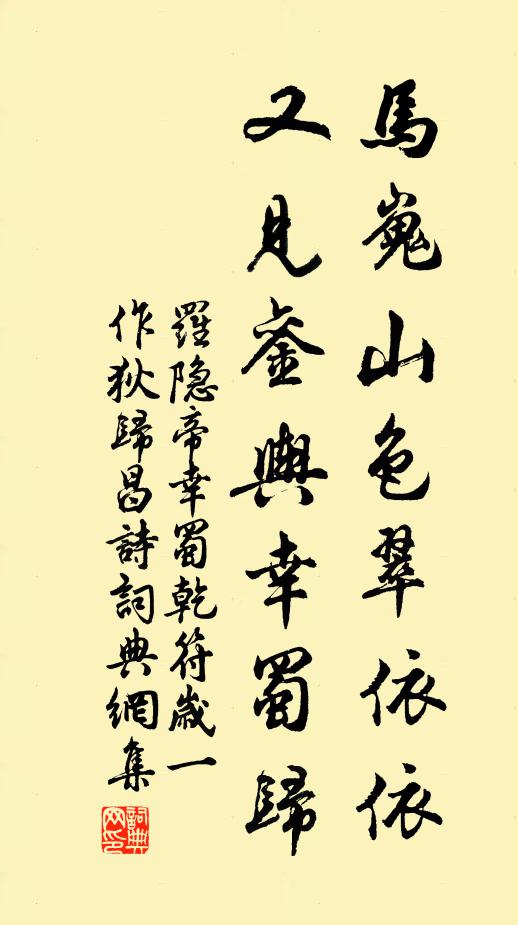 馬嵬山色翠依依
又見鑾輿幸蜀歸
羅隐帝幸蜀乾符歲一
作狄歸昌詩詞典網集
詞典网印